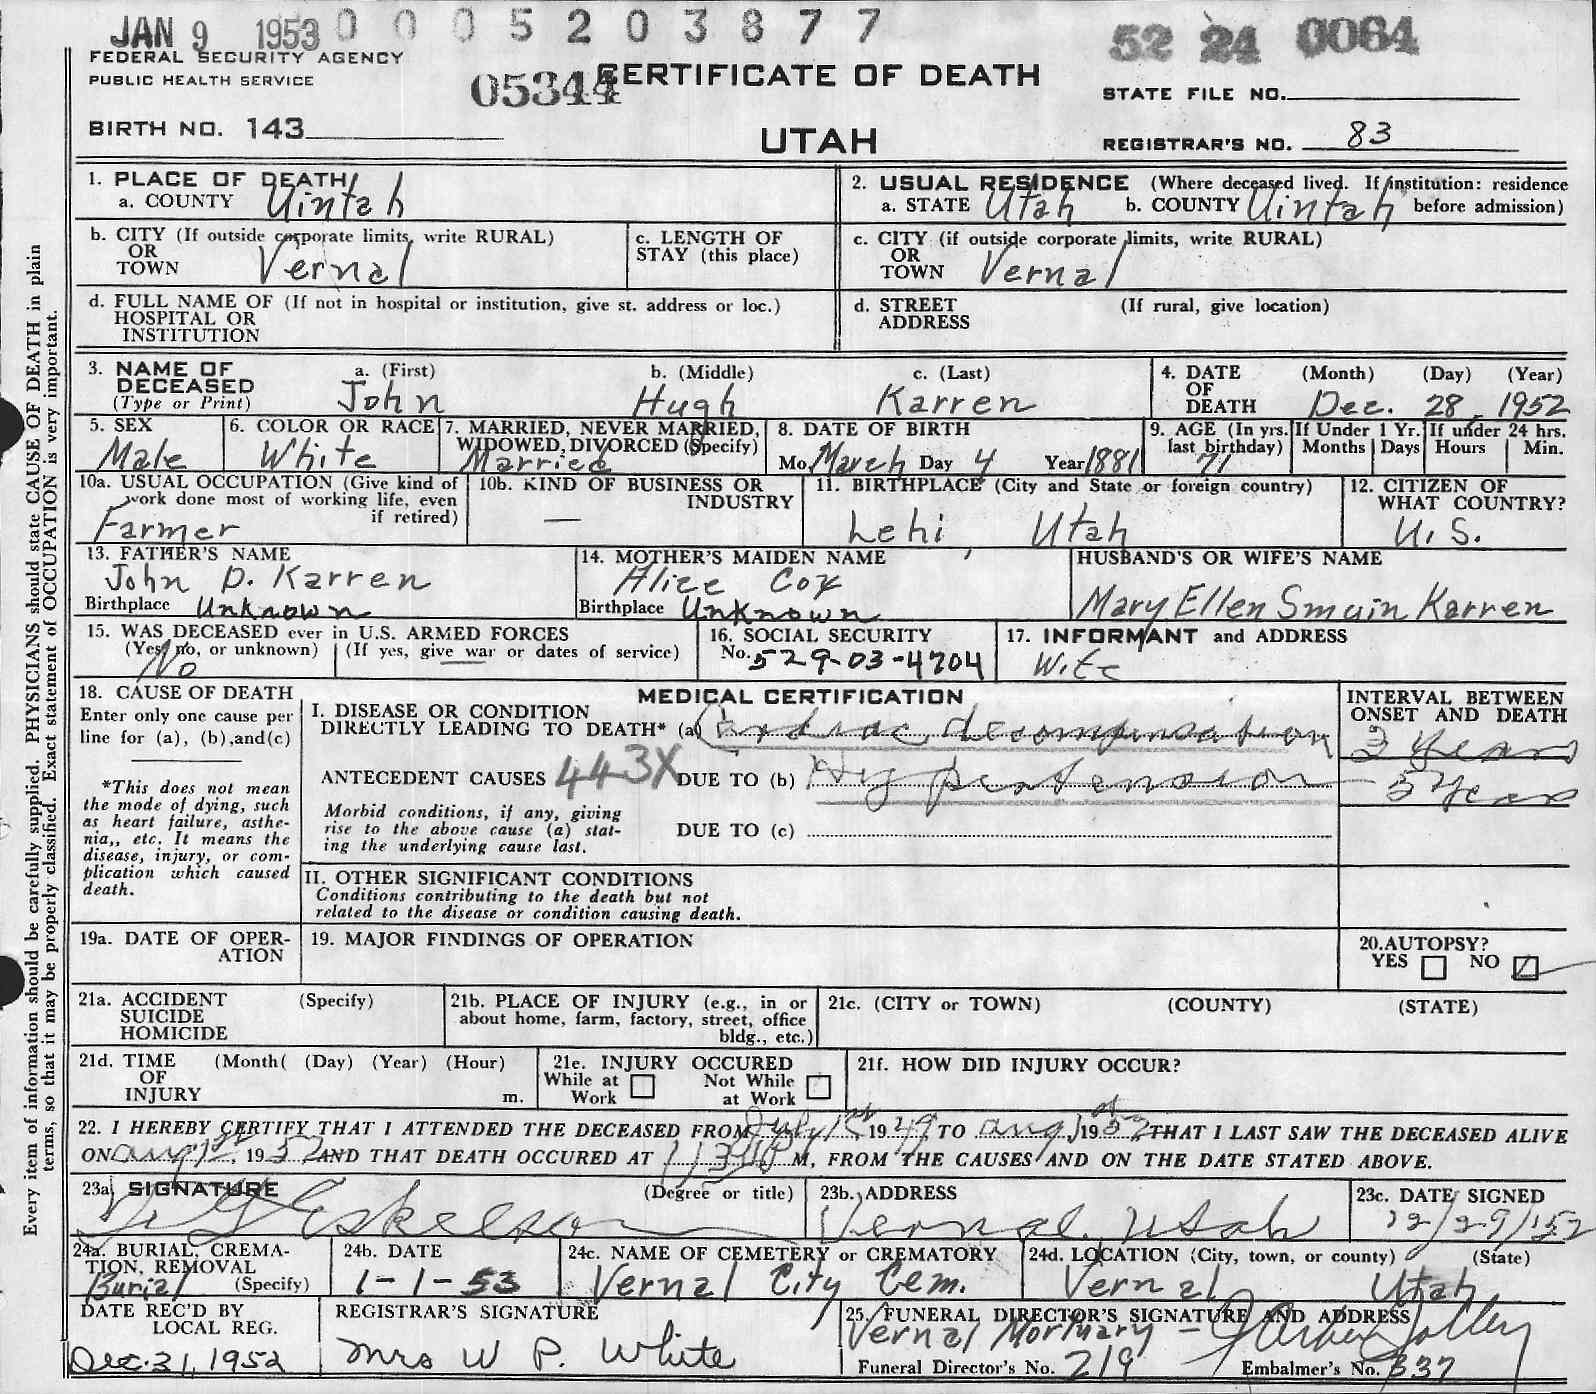 JAN 9 1953 0 0 0 5 2 0 3 8 7 7
52 24 0064
FEDERAL SECURITY AGENCY
PUBLIC HEALTH SERVICE
05344
CERTIFICATE OF DEATH
STATE FILE NO.
BIRTH NO. 143
UTAH
REGISTRAR'S NO. 83
Every item of information should be carefully supplied. PHYSICIANS should state CAUSE OF DEATH in plain
terms, so that it may be properly classified. Exact statement of OCCUPATION is very important.
1. PLACE OF DEATH
a. COUNTY Uintah
2. USUAL RESIDENCE (Where deceased lived. If institution: residence
a. STATE Utah b. COUNTY Uintah before admission)
b. CITY (If outside corporate limits, write RURAL)
OR
TOWN Vernal
c. LENGTH OF
STAY (this place)
c. CITY (if outside corporate limits, write RURAL)
OR
TOWN Vernal
d. FULL NAME OF (If not in hospital or institution, give st. address or loc.)
HOSPITAL OR
INSTITUTION
d. STREET (If rural, give location)
ADDRESS
3. NAME OF a. (First) b. (Middle) c. (Last)
DECEASED
(Type or Print) John Hugh Karren
4. DATE (Month) (Day) (Year)
OF
DEATH Dec. 28, 1952
5. SEX
Male
6. COLOR OR RACE
White
7. MARRIED, NEVER MARRIED,
WIDOWED, DIVORCED (Specify)
Married
8. DATE OF BIRTH
Mo. March Day 4 Year 1881
9. AGE (In yrs. If Under 1 Yr. If under 24 hrs.
last birthday) Months Days Hours Min.
71
10a. USUAL OCCUPATION (Give kind of
work done most of working life, even
if retired)
Farmer
10b. KIND OF BUSINESS OR
INDUSTRY
—
11. BIRTHPLACE (City and State or foreign country)
Lehi, Utah
12. CITIZEN OF
WHAT COUNTRY?
U.S.
13. FATHER'S NAME
John D. Karren
Birthplace Unknown
14. MOTHER'S MAIDEN NAME
Alice Cox
Birthplace Unknown
HUSBAND'S OR WIFE'S NAME
Mary Ellen Smuin Karren
15. WAS DECEASED ever in U.S. ARMED FORCES
(Yes, no, or unknown) (If yes, give war or dates of service)
No —
16. SOCIAL SECURITY
No. 529-03-4704
17. INFORMANT and ADDRESS
Wife
18. CAUSE OF DEATH
Enter only one cause per
line for (a), (b), and (c)
*This does not mean
the mode of dying, such
as heart failure, asthe-
nia,, etc. It means the
disease, injury, or com-
plication which caused
death.
MEDICAL CERTIFICATION
INTERVAL BETWEEN
ONSET AND DEATH
I. DISEASE OR CONDITION
DIRECTLY LEADING TO DEATH* (a) Cardiac decompensation 2 Years
ANTECEDENT CAUSES 443X DUE TO (b) Hypertension 5 Years
Morbid conditions, if any, giving
rise to the above cause (a) stat-
ing the underlying cause last.
DUE TO (c)
II. OTHER SIGNIFICANT CONDITIONS
Conditions contributing to the death but not
related to the disease or condition causing death.
19a. DATE OF OPER-
ATION
19. MAJOR FINDINGS OF OPERATION
20. AUTOPSY?
YES NO
21a. ACCIDENT (Specify)
SUICIDE
HOMICIDE
21b. PLACE OF INJURY (e.g., in or
about home, farm, factory, street, office
bldg., etc.)
21c. (CITY or TOWN) (COUNTY) (STATE)
21d. TIME (Month( (Day) (Year) (Hour)
OF
INJURY m.
21e. INJURY OCCURED
While at Not While
Work at Work
21f. HOW DID INJURY OCCUR?
22. I HEREBY CERTIFY THAT I ATTENDED THE DECEASED FROM July 1st 1949 TO Aug 1st 1952 THAT I LAST SAW THE DECEASED ALIVE
ON Aug 1st, 1952 AND THAT DEATH OCCURED AT M, FROM THE CAUSES AND ON THE DATE STATED ABOVE.
23a. SIGNATURE (Degree or title)
Eskelson
23b. ADDRESS
Vernal, Utah
23c. DATE SIGNED
12/29/52
24a. BURIAL, CREMA-
TION, REMOVAL
(Specify)
Burial
24b. DATE
1-1-53
24c. NAME OF CEMETERY OR CREMATORY
Vernal City Cem.
24d. LOCATION (City, town, or county) (State)
Vernal Utah
DATE REC'D BY
LOCAL REG.
Dec. 31, 1952
REGISTRAR'S SIGNATURE
Mrs W P. White
25. FUNERAL DIRECTOR'S SIGNATURE AND ADDRESS
Vernal Mortuary —
Funeral Director's No. 219 Embalmer's No. 337